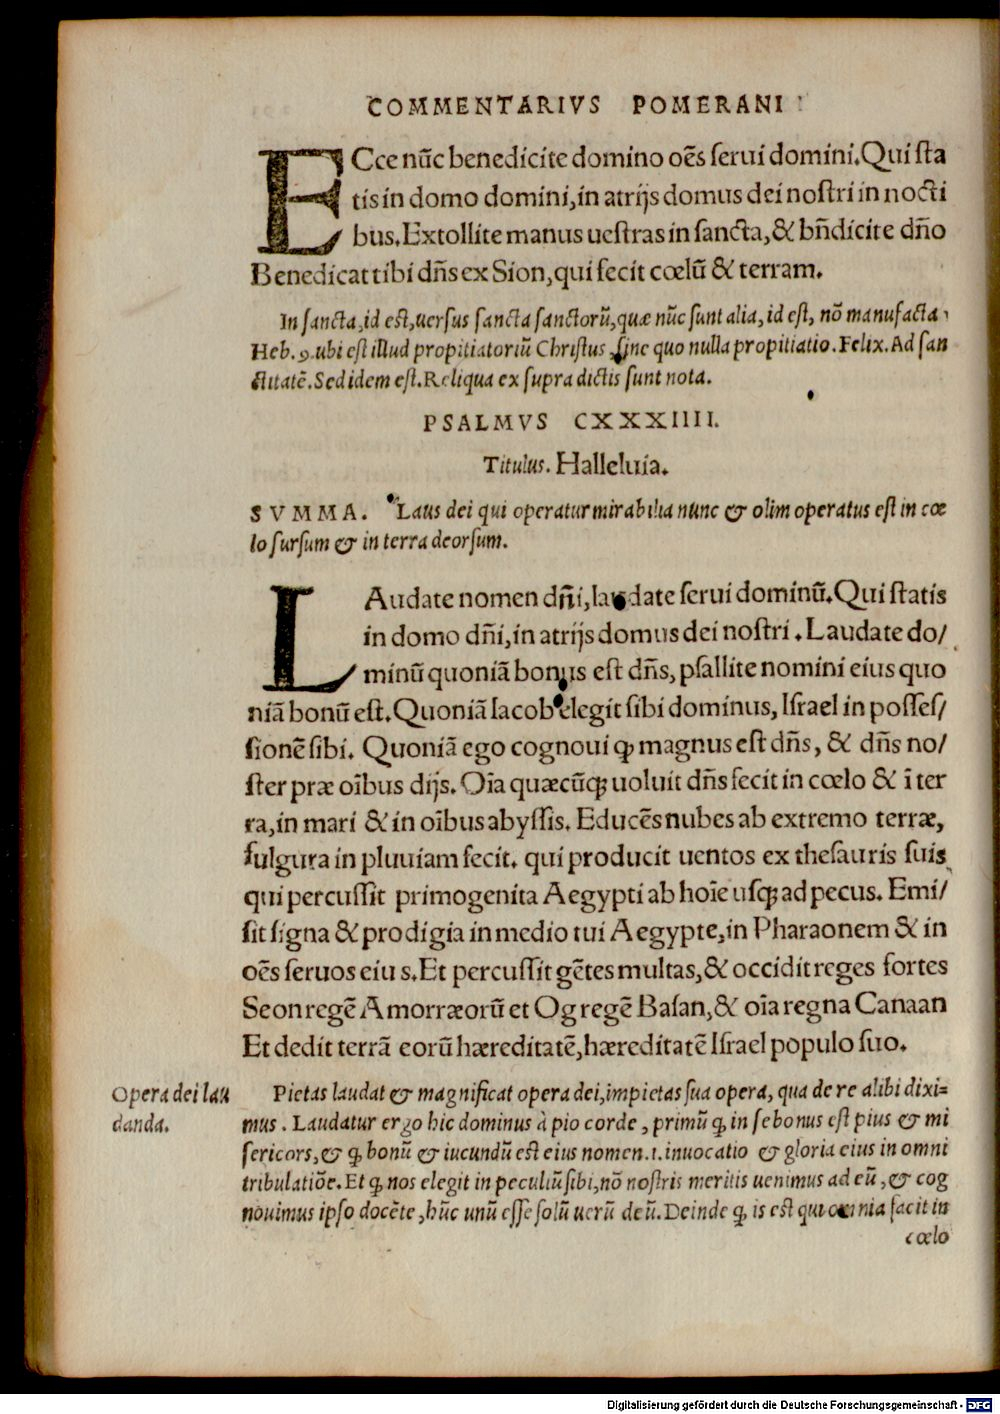 COMMENTARIVS POMERANI
ECce nūc benedicite domino oēs serui domini. Qui sta
tis in domo domini, in atrijs domus dei nostri in nocti
bus. Extollite manus uestras in sancta, & bn̄dicite dn̄o
Benedicat tibi dn̄s ex Sion, qui fecit cœlū & terram.
In sancta, id est, uersus sancta sanctorū, quæ nūc sunt alia, id est, nō manufacta,
Heb. 9. ubi est illud propitiatoriū Christus, sine quo nulla propitiatio. Felix. Ad san
ctitatē. Sed idem est. Reliqua ex supra dictis sunt nota.
PSALMVS CXXXIIII.
Titulus. Halleluia.
SVMMA. Laus dei qui operatur mirabilia nunc & olim operatus est in cœ
lo sursum & in terra deorsum.
LAudate nomen dn̄i, laudate serui dominū. Qui statis
in domo dn̄i, in atrijs domus dei nostri. Laudate do/
minū quoniā bonus est dn̄s, psallite nomini eius quo
niā bonū est. Quoniā Iacob elegit sibi dominus, Israel in posses/
sionē sibi. Quoniā ego cognoui ꝙ magnus est dn̄s, & dn̄s no/
ster præ oībus dijs. Oīa quæcūqꝫ uoluit dn̄s fecit in cœlo & ī ter
ra, in mari & in oībus abyssis. Educēs nubes ab extremo terræ,
fulgura in pluuiam fecit. qui producit uentos ex thesauris suis
qui percussit primogenita Aegypti ab hoīe usqꝫ ad pecus. Emi/
sit signa & prodigia in medio tui Aegypte, in Pharaonem & in
oēs seruos eius. Et percussit gētes multas, & occidit reges fortes
Seon regē Amorræorū et Og regē Basan, & oīa regna Canaan
Et dedit terrā eorū hæreditatē, hæreditatē Israel populo suo.
Opera dei lau
danda.
Pietas laudat & magnificat opera dei, impietas sua opera, qua de re alibi dixi=
mus. Laudatur ergo hic dominus à pio corde, primū ꝙ in se bonus est pius & mi
sericors, & ꝙ bonū & iucundū est eius nomen. i. inuocatio & gloria eius in omni
tribulatiōe. Et ꝙ nos elegit in peculiū sibi, nō nostris meritis uenimus ad eū, & cog
nouimus ipso docēte, hūc unū esse solū uerū deū. Deinde ꝙ is est qui omnia facit in
cœlo
Digitalisierung gefördert durch die Deutsche Forschungsgemeinschaft - DFG